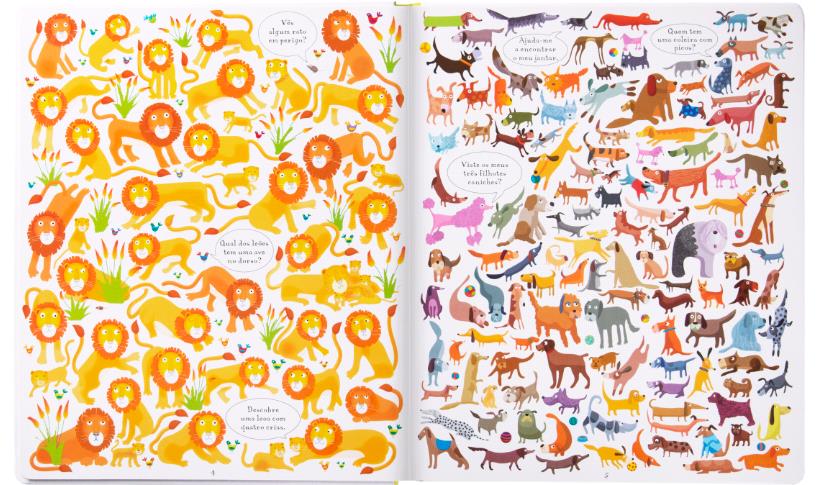 Vês
algum rato
em perigo?
Qual dos leões
tem uma ave
no dorso?
Descobre
uma leoa com
quatro crias.
4
Ajuda-me
a encontrar
o meu jantar.
Quem tem
uma coleira com
picos?
Viste os meus
três filhotes
caniches?
5